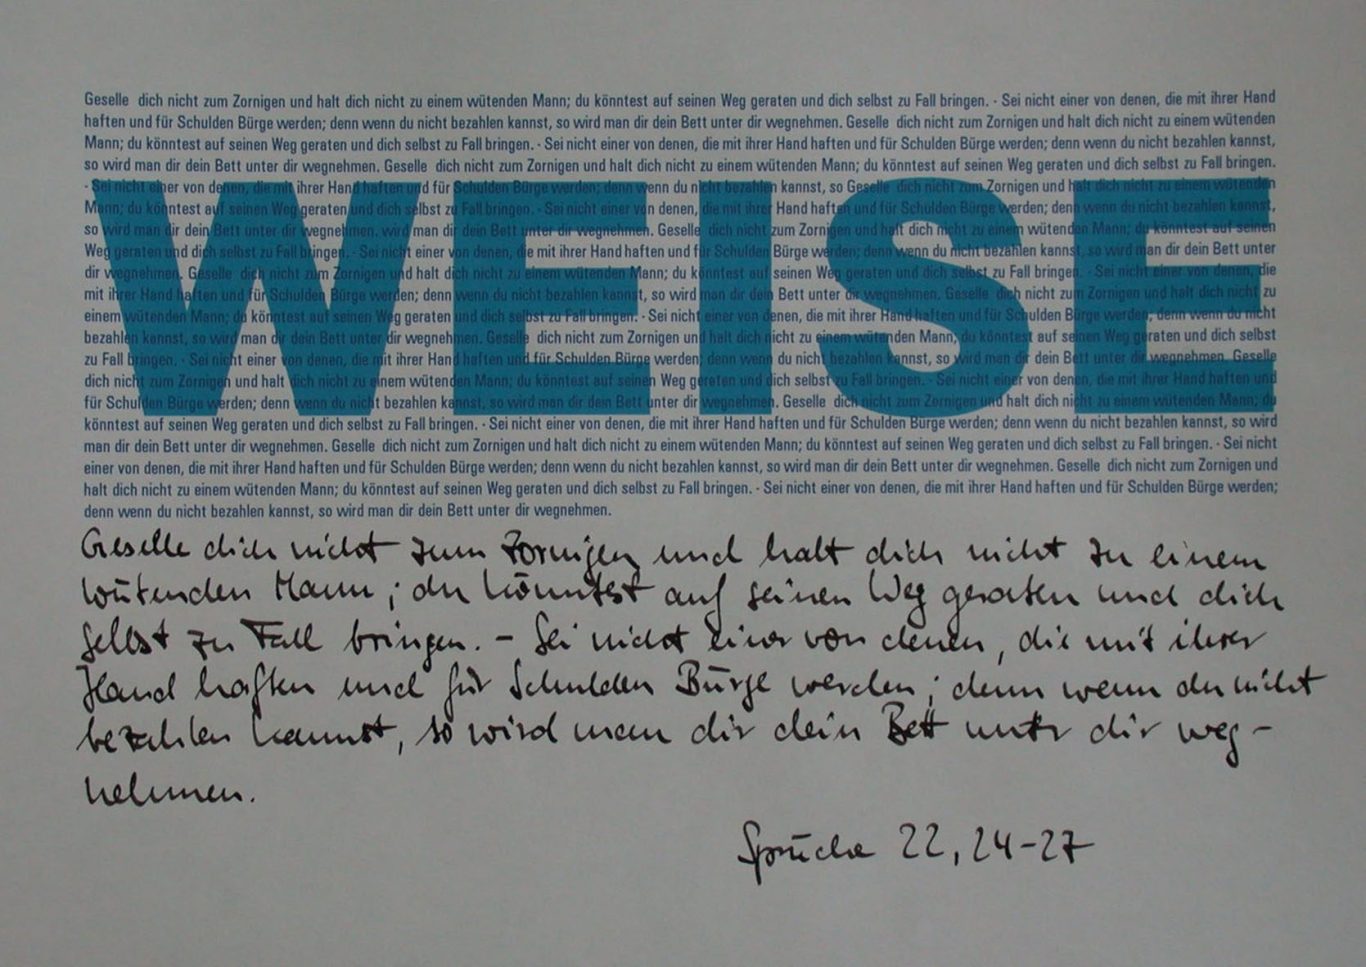 Geselle dich nicht zum Zornigen und halt dich nicht zu einem wütenden Mann; du könntest auf seinen Weg geraten und dich selbst zu Fall bringen. - Sei nicht einer von denen, die mit ihrer Hand
haften und für Schulden Bürge werden; denn wenn du nicht bezahlen kannst, so wird man dir dein Bett unter dir wegnehmen. Geselle dich nicht zum Zornigen und halt dich nicht zu einem wütenden
Mann; du könntest auf seinen Weg geraten und dich selbst zu Fall bringen. - Sei nicht einer von denen, die mit ihrer Hand haften und für Schulden Bürge werden; denn wenn du nicht bezahlen kannst,
so wird man dir dein Bett unter dir wegnehmen. Geselle dich nicht zum Zornigen und halt dich nicht zu einem wütenden Mann; du könntest auf seinen Weg geraten und dich selbst zu Fall bringen.
- Sei nicht einer von denen, die mit ihrer Hand haften und für Schulden Bürge werden; denn wenn du nicht bezahlen kannst, so Geselle dich nicht zum Zornigen und halt dich nicht zu einem wütenden
Mann; du könntest auf seinen Weg geraten und dich selbst zu Fall bringen. - Sei nicht einer von denen, die mit ihrer Hand haften und für Schulden Bürge werden; denn wenn du nicht bezahlen kannst,
so wird man dir dein Bett unter dir wegnehmen. wird man dir dein Bett unter dir wegnehmen. Geselle dich nicht zum Zornigen und halt dich nicht zu einem wütenden Mann; du könntest auf seinen
Weg geraten und dich selbst zu Fall bringen. - Sei nicht einer von denen, die mit ihrer Hand haften und für Schulden Bürge werden; denn wenn du nicht bezahlen kannst, so wird man dir dein Bett unter
dir wegnehmen. Geselle dich nicht zum Zornigen und halt dich nicht zu einem wütenden Mann; du könntest auf seinen Weg geraten und dich selbst zu Fall bringen. - Sei nicht einer von denen, die
mit ihrer Hand haften und für Schulden Bürge werden; denn wenn du nicht bezahlen kannst, so wird man dir dein Bett unter dir wegnehmen. Geselle dich nicht zum Zornigen und halt dich nicht zu
einem wütenden Mann; du könntest auf seinen Weg geraten und dich selbst zu Fall bringen. - Sei nicht einer von denen, die mit ihrer Hand haften und für Schulden Bürge werden; denn wenn du nicht
bezahlen kannst, so wird man dir dein Bett unter dir wegnehmen. Geselle dich nicht zum Zornigen und halt dich nicht zu einem wütenden Mann, du könntest auf seinen Weg geraten und dich selbst
zu Fall bringen. - Sei nicht einer von denen, die mit ihrer Hand haften und für Schulden Bürge werden; denn wenn du nicht bezahlen kannst, so wird man dir dein Bett unter dir wegnehmen. Geselle
dich nicht zum Zornigen und halt dich nicht zu einem wütenden Mann; du könntest auf seinen Weg geraten und dich selbst zu Fall bringen. - Sei nicht einer von denen, die mit ihrer Hand haften und
für Schulden Bürge werden; denn wenn du nicht bezahlen kannst, so wird man dir dein Bett unter dir wegnehmen. Geselle dich nicht zum Zornigen und halt dich nicht zu einem wütenden Mann; du
könntest auf seinen Weg geraten und dich selbst zu Fall bringen. - Sei nicht einer von denen, die mit ihrer Hand haften und für Schulden Bürge werden; denn wenn du nicht bezahlen kannst, so wird
man dir dein Bett unter dir wegnehmen. Geselle dich nicht zum Zornigen und halt dich nicht zu einem wütenden Mann; du könntest auf seinen Weg geraten und dich selbst zu Fall bringen. - Sei nicht
einer von denen, die mit ihrer Hand haften und für Schulden Bürge werden; denn wenn du nicht bezahlen kannst, so wird man dir dein Bett unter dir wegnehmen. Geselle dich nicht zum Zornigen und
halt dich nicht zu einem wütenden Mann; du könntest auf seinen Weg geraten und dich selbst zu Fall bringen. - Sei nicht einer von denen, die mit ihrer Hand haften und für Schulden Bürge werden;
denn wenn du nicht bezahlen kannst, so wird man dir dein Bett unter dir wegnehmen.
WEISE
Geselle dich nicht zum Zornigen und halt dich nicht zu einem
wütenden Mann; du könntest auf seinen Weg geraten und dich
selbst zu Fall bringen. - Sei nicht einer von denen, die mit ihrer
Hand haften und für Schulden Bürge werden; denn wenn du nicht
bezahlen kannst, so wird man dir dein Bett unter dir weg-
nehmen.
Sprüche 22, 24-27